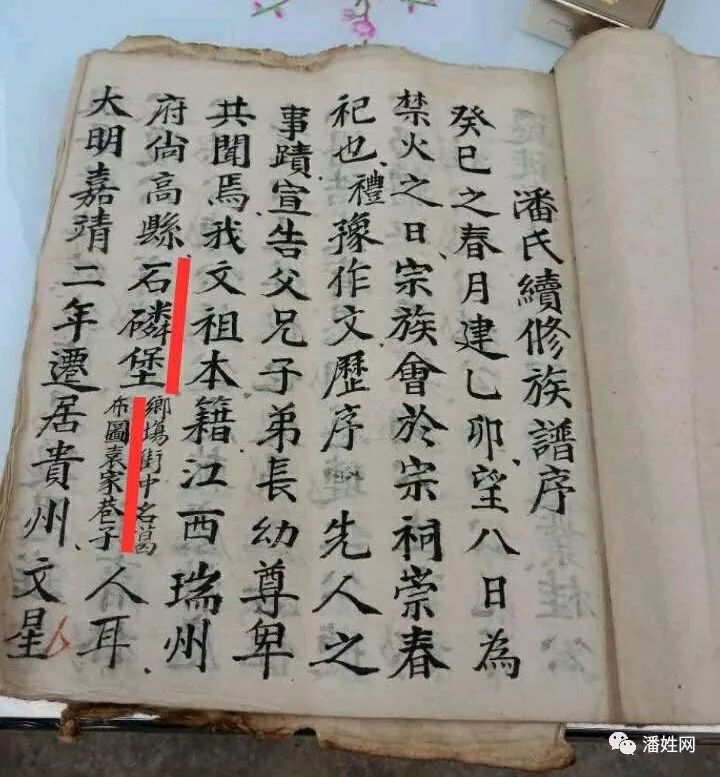 潘氏續修族譜序
癸巳之春月建乙卯望八日為
禁火之日宗族會於宗祠崇春
祀也禮豫作文歷序先人之
事蹟宣告父兄子弟長幼尊卑
共聞焉我文祖本籍江西瑞州
府尙高縣石磷堡鄉塲街中名蒿布圖袁家巷子人耳
大明嘉靖二年遷居貴州文星
潘姓网